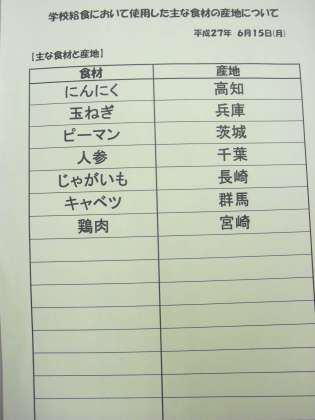 学校給食において使用した主な食材の産地について
平成27年 6月15日(月)
【主な食材と産地】
食材 産地
にんにく 高知
玉ねぎ 兵庫
ピーマン 茨城
人参 千葉
じゃがいも 長崎
キャベツ 群馬
鶏肉 宮崎